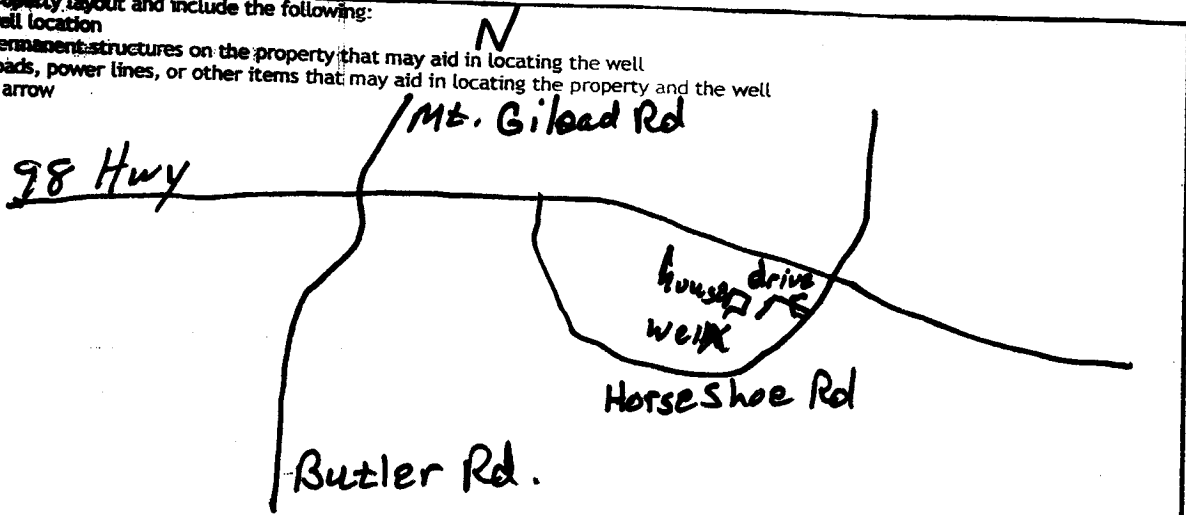 layout and include the following:
location
structures on the property that may aid in locating the well
power lines, or other items that may aid in locating the property and the well
arrow
N
Mt. Gilead Rd
98 Hwy
house
drive
well
Horseshoe Rd
Butler Rd.